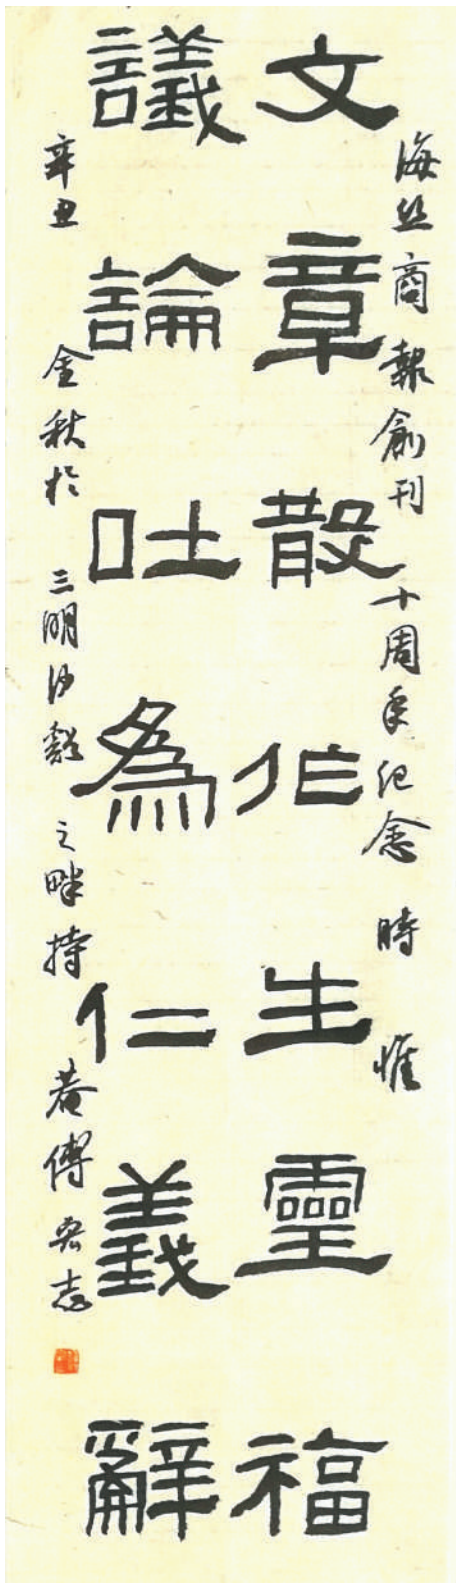 海丝商報創刊十周年纪念時惟
文章散作生靈福
議論吐為仁義辭
辛丑金秋於三明沙谿之畔持菴傅宏志